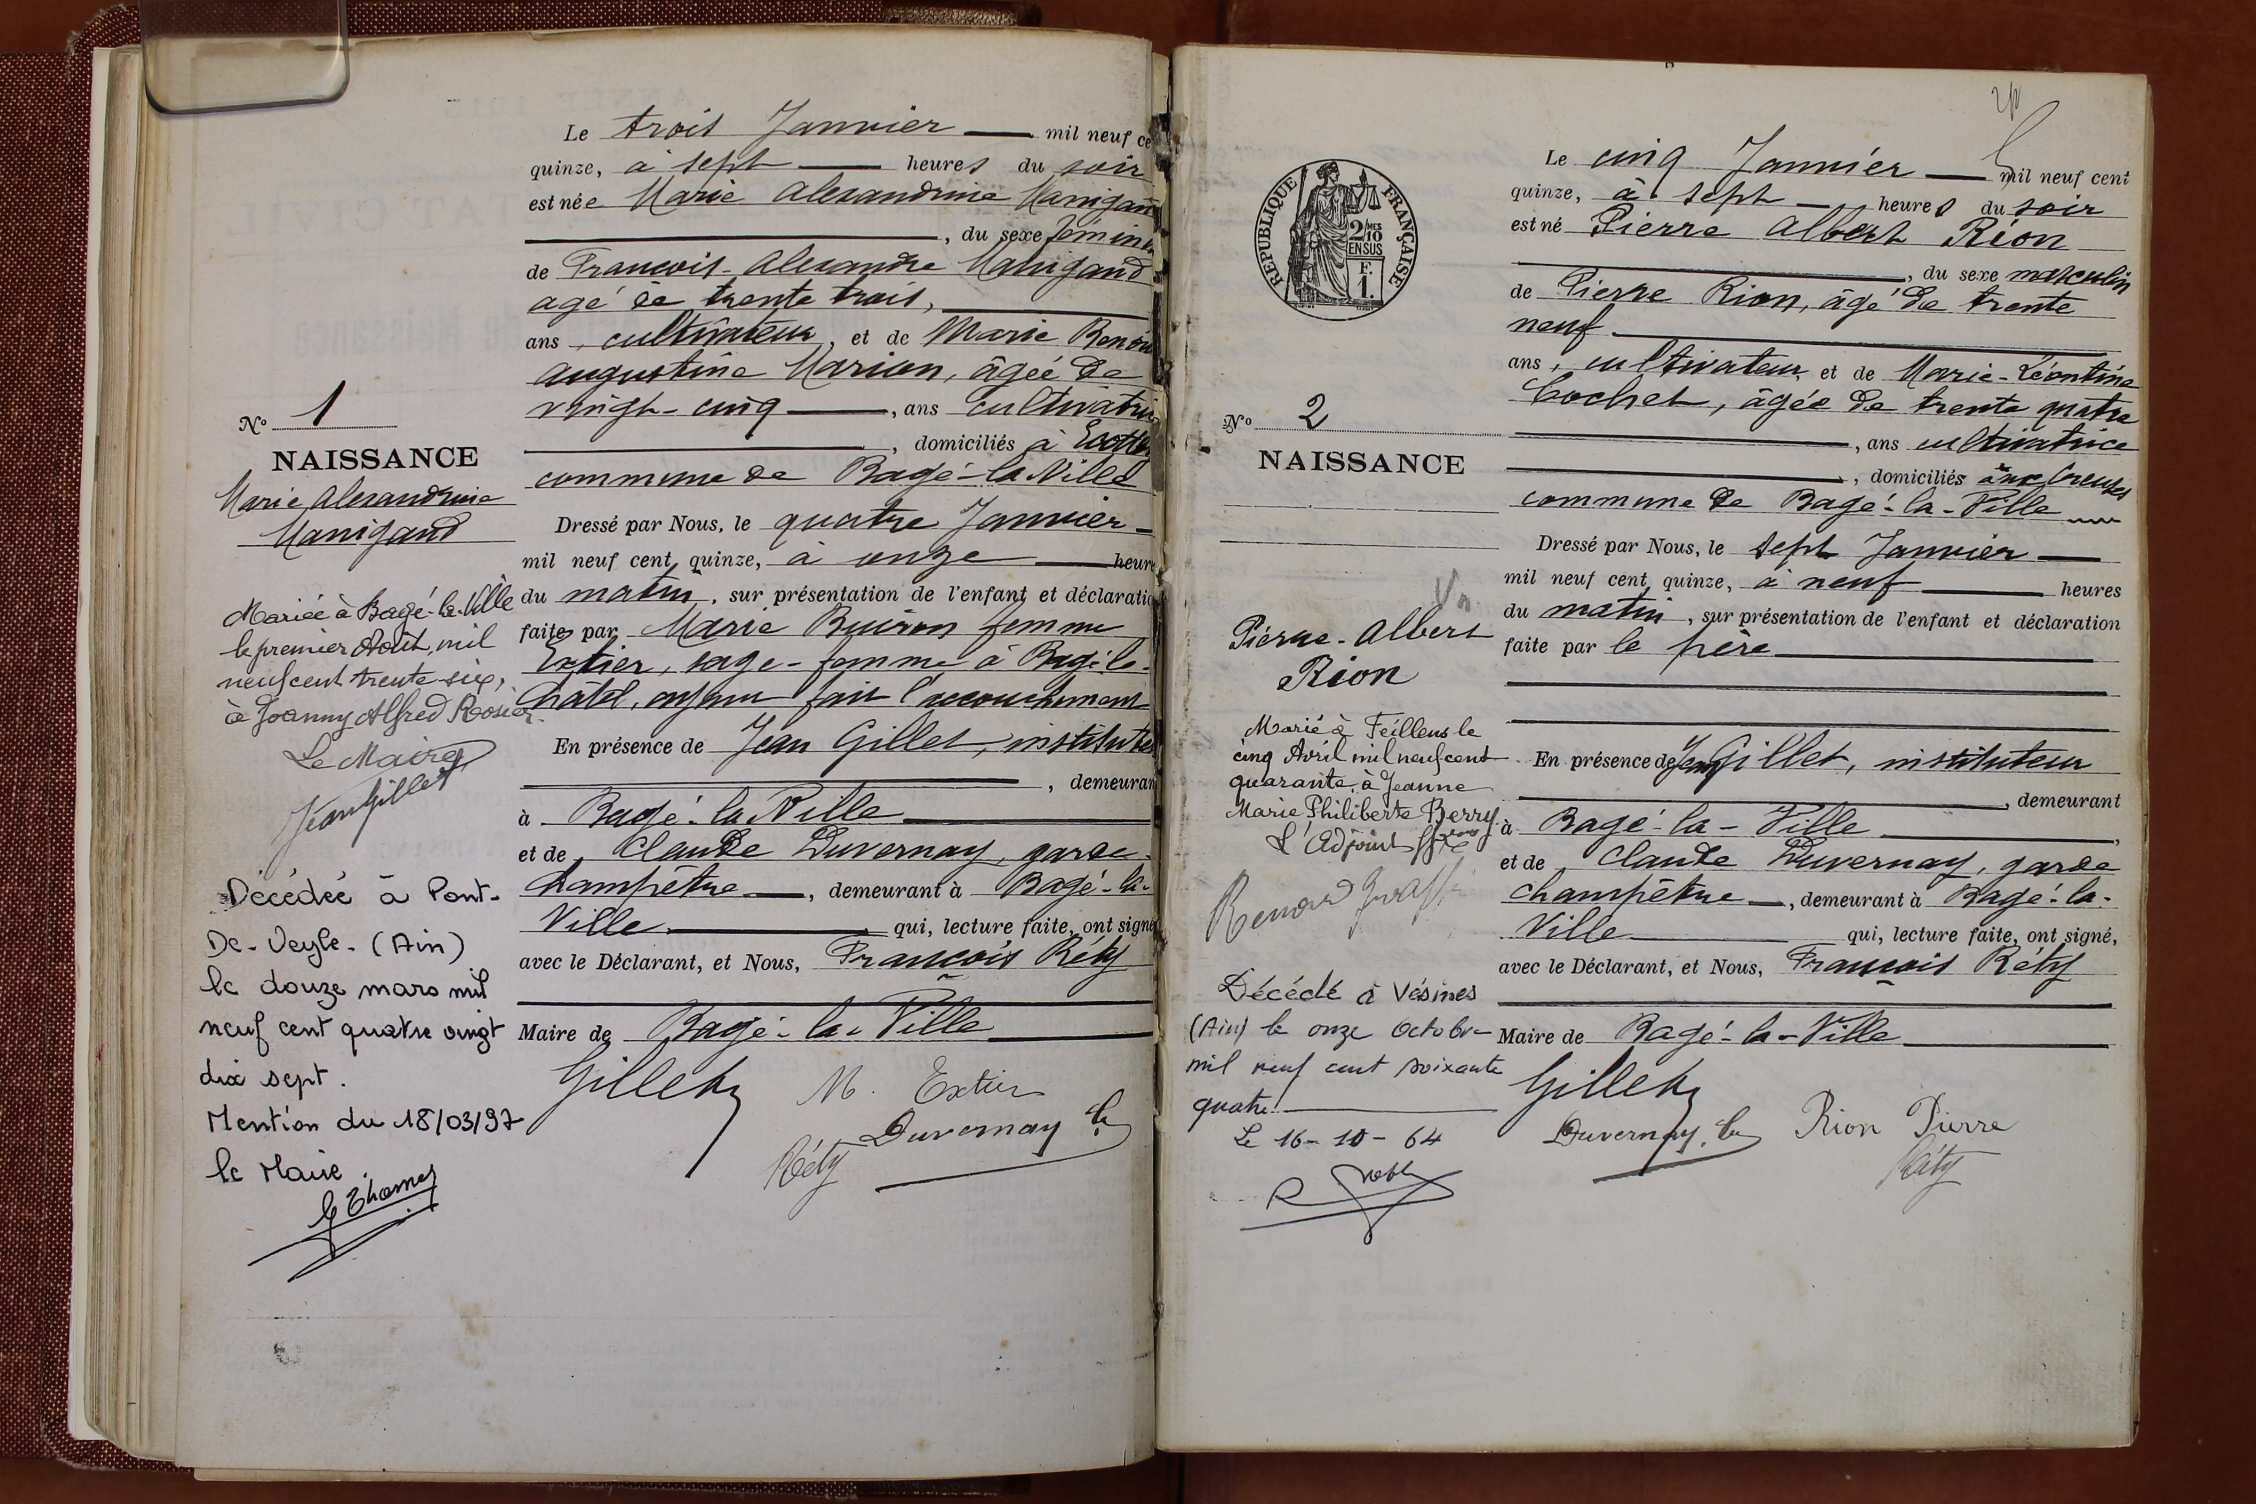 Le trois Janvier mil neuf ce
quinze, à sept heures du soir
est née Marie Alexandrine Manigand
, du sexe féminin
de François-Alexandre Manigand
âgé de trente trois,
ans, cultivateur, et de Marie
Augustine Marion, âgée de
vingt-cinq, ans cultivatrice
, domiciliés à
commune de Bagé-la-Ville
Dressé par Nous, le quatre Janvier
mil neuf cent quinze, à onze heure
du matin, sur présentation de l'enfant et déclaratio
faite par Marie Buiron femme
Extier, sage-femme à Bagé-le-
Châtel, ayant fait l'accouchement
En présence de Jean Gillet, institute
, demeuran
à Bagé-la-Ville
et de Claude Duvernay, garde
champêtre, demeurant à Bagé-la-
Ville qui, lecture faite, ont signé
avec le Déclarant, et Nous, François Réty
Maire de Bagé-la-Ville
Gillet M. Extier
Duvernay Cl
Réty
No 1
NAISSANCE
Marie Alexandrine
Manigand
Mariée à Bagé-la-Ville
le premier Août, mil
neuf cent trente six,
à Joanny Alfred Rosier.
Le Maire,
Jean Gillet
Décédée à Pont-
De-Veyle-(Ain)
le douze mars mil
neuf cent quatre vingt
dix sept.
Mention du 18/03/97
le Maire
RÉPUBLIQUE FRANÇAISE
2/10 EN SUS
F. 1.
Le cinq Janvier mil neuf cent
quinze, à sept heures du soir
est né Pierre Albert Rion
, du sexe masculin
de Pierre Rion, âgé de trente
neuf
ans, cultivateur, et de Marie-Léontine
Cochet, âgée de trente quatre
, ans cultivatrice
, domiciliés aux Creuses
commune de Bagé-la-Ville
Dressé par Nous, le sept Janvier
mil neuf cent quinze, à neuf heures
du matin, sur présentation de l'enfant et déclaration
faite par le père
En présence de Jean Gillet, instituteur
, demeurant
à Bagé-la-Ville,
et de Claude Duvernay, garde
champêtre, demeurant à Bagé-la-
Ville qui, lecture faite, ont signé,
avec le Déclarant, et Nous, François Réty
Maire de Bagé-la-Ville
Gillet
Duvernay Cl Rion Pierre
Réty
No 2
NAISSANCE
Pierre-Albert
Rion
Marié à Feillens le
cinq Avril mil neuf cent
quarante, à Jeanne
Marie Philiberte Berry.
L'Adjoint
Décédé à Vésines
(Ain) le onze Octobre
mil neuf cent soixante
quatre.
Le 16-10-64